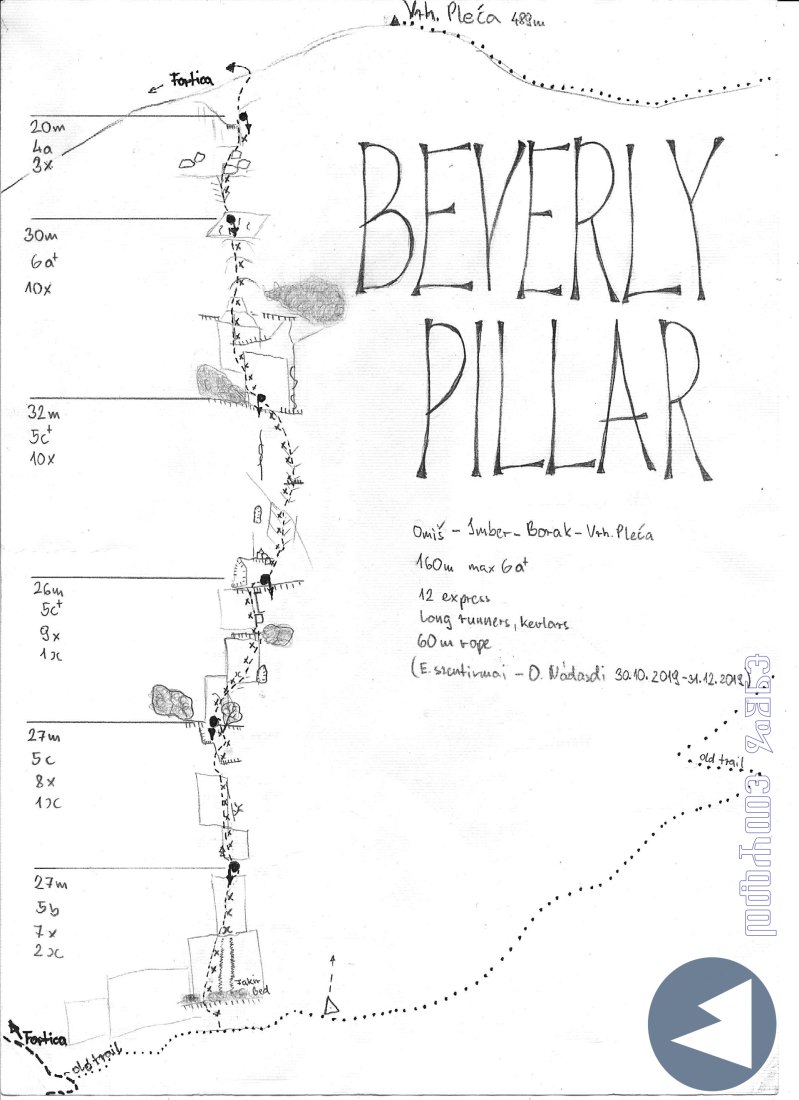 Vrh. Pleća 489m
Fortica
20m
4a
3x
BEVERLY
PILLAR
30m
6a+
10x
32m
5c+
10x
Omiš - Imber - Borak - Vrh. Pleća
160m max 6a+
12 express
Long runners, kevlars
60m rope
(E. Szentirmai - O. Nádasdi 30.10.2019-31.12.2019)
26m
5c+
9x
1x
27m
5c
8x
1x
old trail
27m
5b
7x
2x
Fakir
Bed
Fortica
old trail